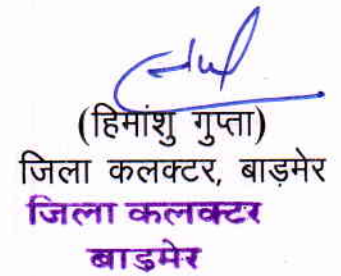 (हिमांशु गुप्ता)
जिला कलक्टर, बाड़मेर
जिला कलक्टर
बाडमेर